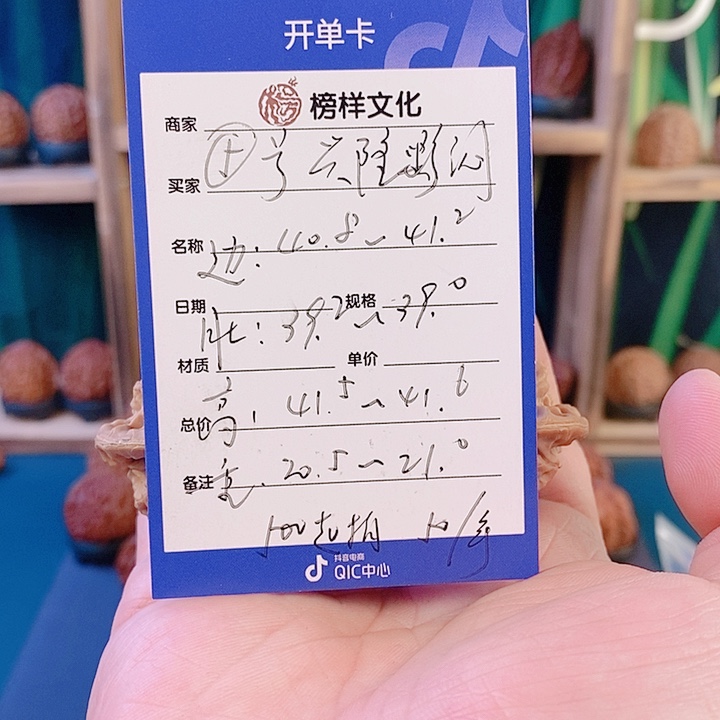 开单卡
榜样文化
商家
号兴隆
买家
名称 边: 40.8~41.2
日期 规格
肚: 39.2~39.0
材质 单价
总价 高: 41.5~41.6
备注 重: 20.5~21.0
100起拍 10/手
抖音电商
QIC中心